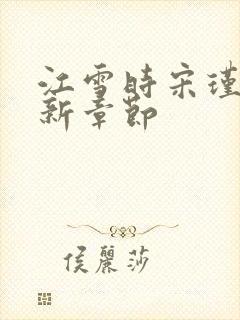 江雪時宋瑾
新章節
侯麗莎